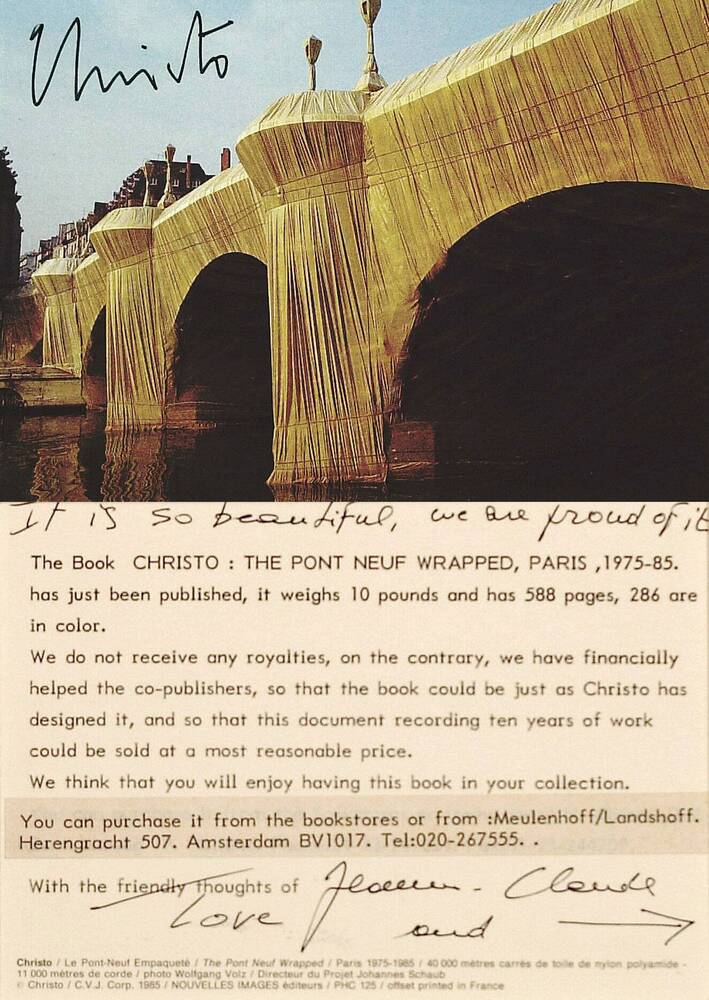 Christo
It is so beautiful, we are proud of it
The Book CHRISTO : THE PONT NEUF WRAPPED, PARIS ,1975-85.
has just been published, it weighs 10 pounds and has 588 pages, 286 are
in color.
We do not receive any royalties, on the contrary, we have financially
helped the co-publishers, so that the book could be just as Christo has
designed it, and so that this document recording ten years of work
could be sold at a most reasonable price.
We think that you will enjoy having this book in your collection.
You can purchase it from the bookstores or from :Meulenhoff/Landshoff.
Herengracht 507. Amsterdam BV1017. Tel:020-267555. .
With the friendly thoughts of Jeanne-Claude
Love and →
Christo / Le Pont-Neuf Empaqueté / The Pont Neuf Wrapped / Paris 1975-1985 / 40 000 mètres carrés de toile de nylon polyamide -
11 000 mètres de corde / photo Wolfgang Volz / Directeur du Projet Johannes Schaub
© Christo / C.V.J. Corp. 1985 / NOUVELLES IMAGES éditeurs / PHC 125 / offset printed in France